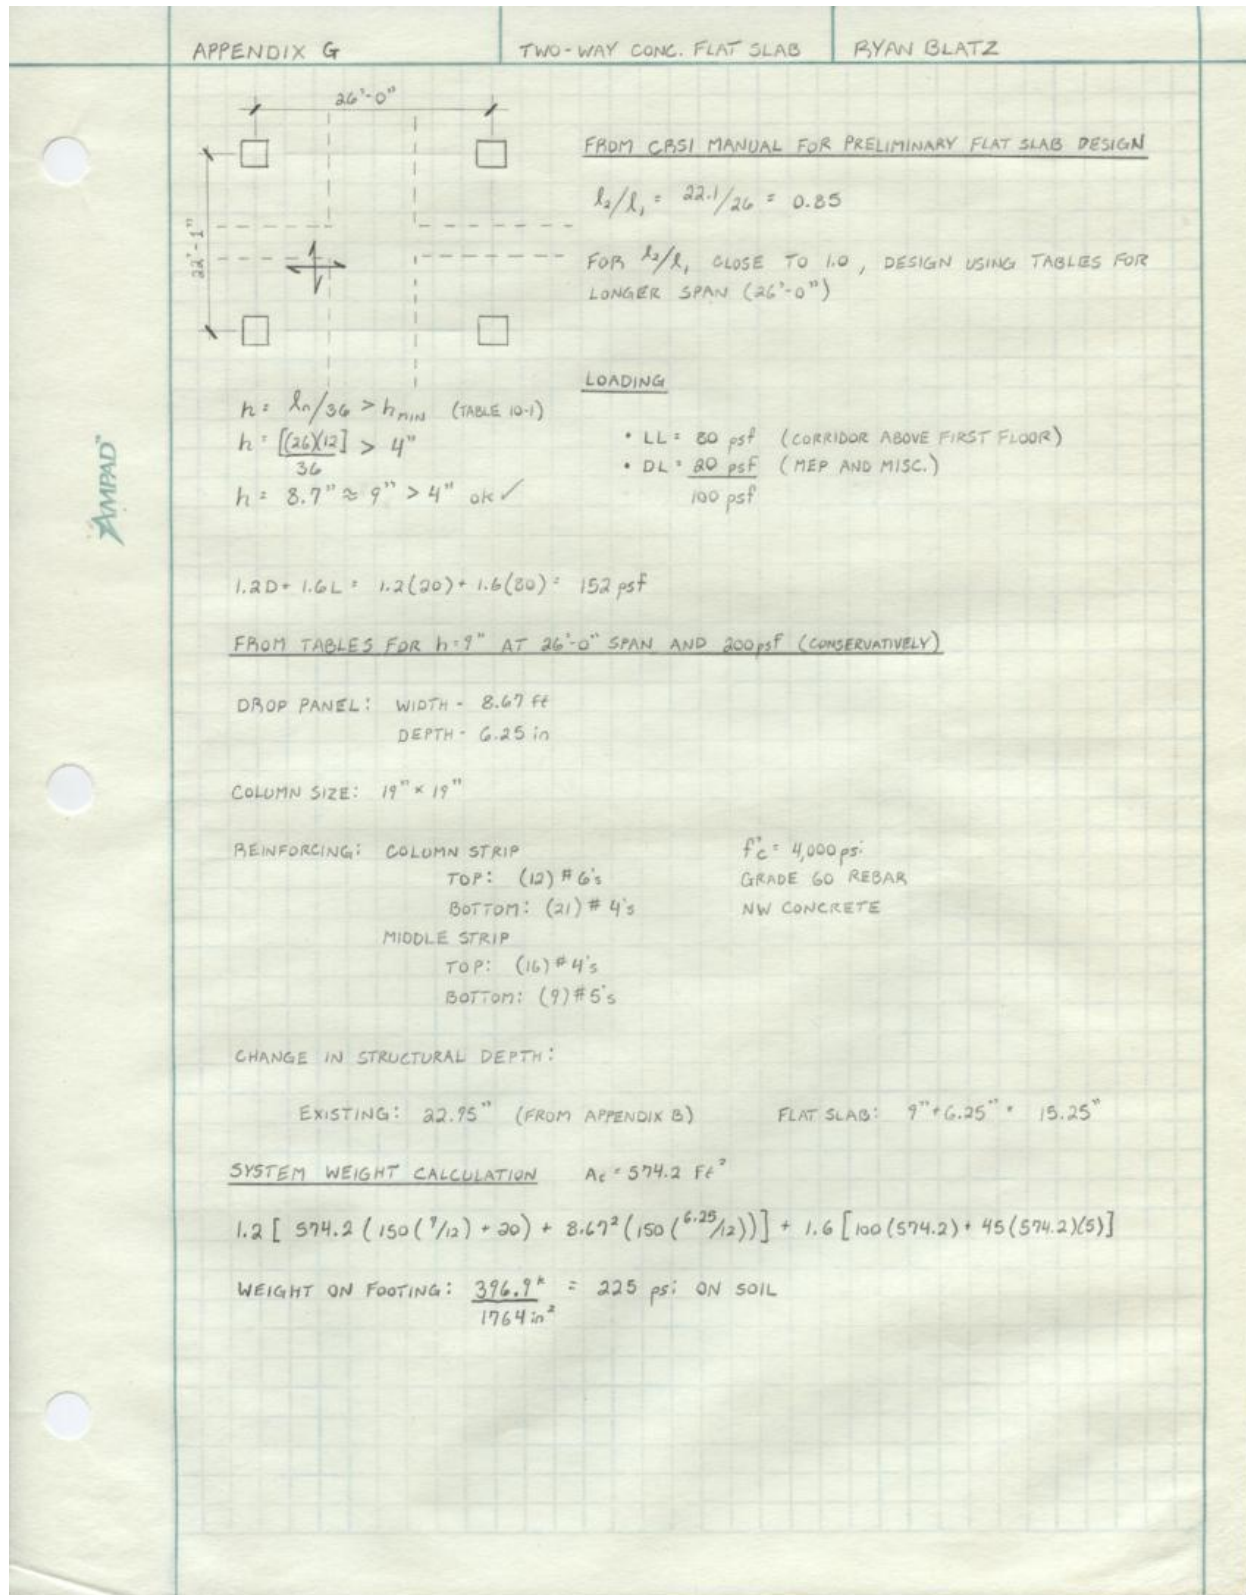 APPENDIX G
TWO-WAY CONC. FLAT SLAB
RYAN BLATZ
26'-0"
22'-1"
FROM CRSI MANUAL FOR PRELIMINARY FLAT SLAB DESIGN
l₂/l₁ = 22.1/26 = 0.85
FOR l₂/l₁ CLOSE TO 1.0, DESIGN USING TABLES FOR
LONGER SPAN (26'-0")
h = ln/36 > hMIN (TABLE 10-1)
h = [(26)(12)]/36 > 4"
h = 8.7" ≈ 9" > 4" ok ✓
LOADING
• LL = 80 psf (CORRIDOR ABOVE FIRST FLOOR)
• DL = 20 psf (MEP AND MISC.)
100 psf
AMPAD™
1.2D + 1.6L = 1.2(20) + 1.6(80) = 152 psf
FROM TABLES FOR h=9" AT 26'-0" SPAN AND 200psf (CONSERVATIVELY)
DROP PANEL: WIDTH - 8.67 ft
DEPTH - 6.25 in
COLUMN SIZE: 19" × 19"
REINFORCING: COLUMN STRIP
TOP: (12) #6's
BOTTOM: (21) #4's
MIDDLE STRIP
TOP: (16) #4's
BOTTOM: (9) #5's
f'c = 4,000 psi
GRADE 60 REBAR
NW CONCRETE
CHANGE IN STRUCTURAL DEPTH:
EXISTING: 22.95" (FROM APPENDIX B)
FLAT SLAB: 9"+6.25" = 15.25"
SYSTEM WEIGHT CALCULATION At = 574.2 Ft²
1.2 [ 574.2 (150(9/12) + 20) + 8.67² (150 (6.25/12))] + 1.6 [100 (574.2) + 45 (574.2)(5)]
WEIGHT ON FOOTING: 396.9ᵏ/1764 in² = 225 psi ON SOIL